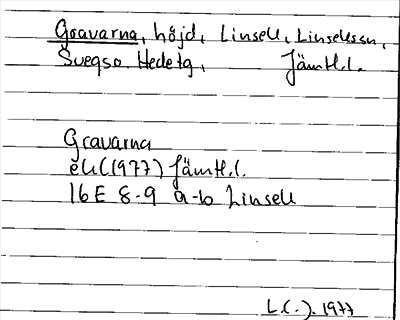 Gravarna, höjd, Linsell, Linsellssn,
Svegs o. Hede tg, Jämtl.l.
Gravarna
ek (1977) Jämtl.l.
16E 8-9 a-b Linsell
1977